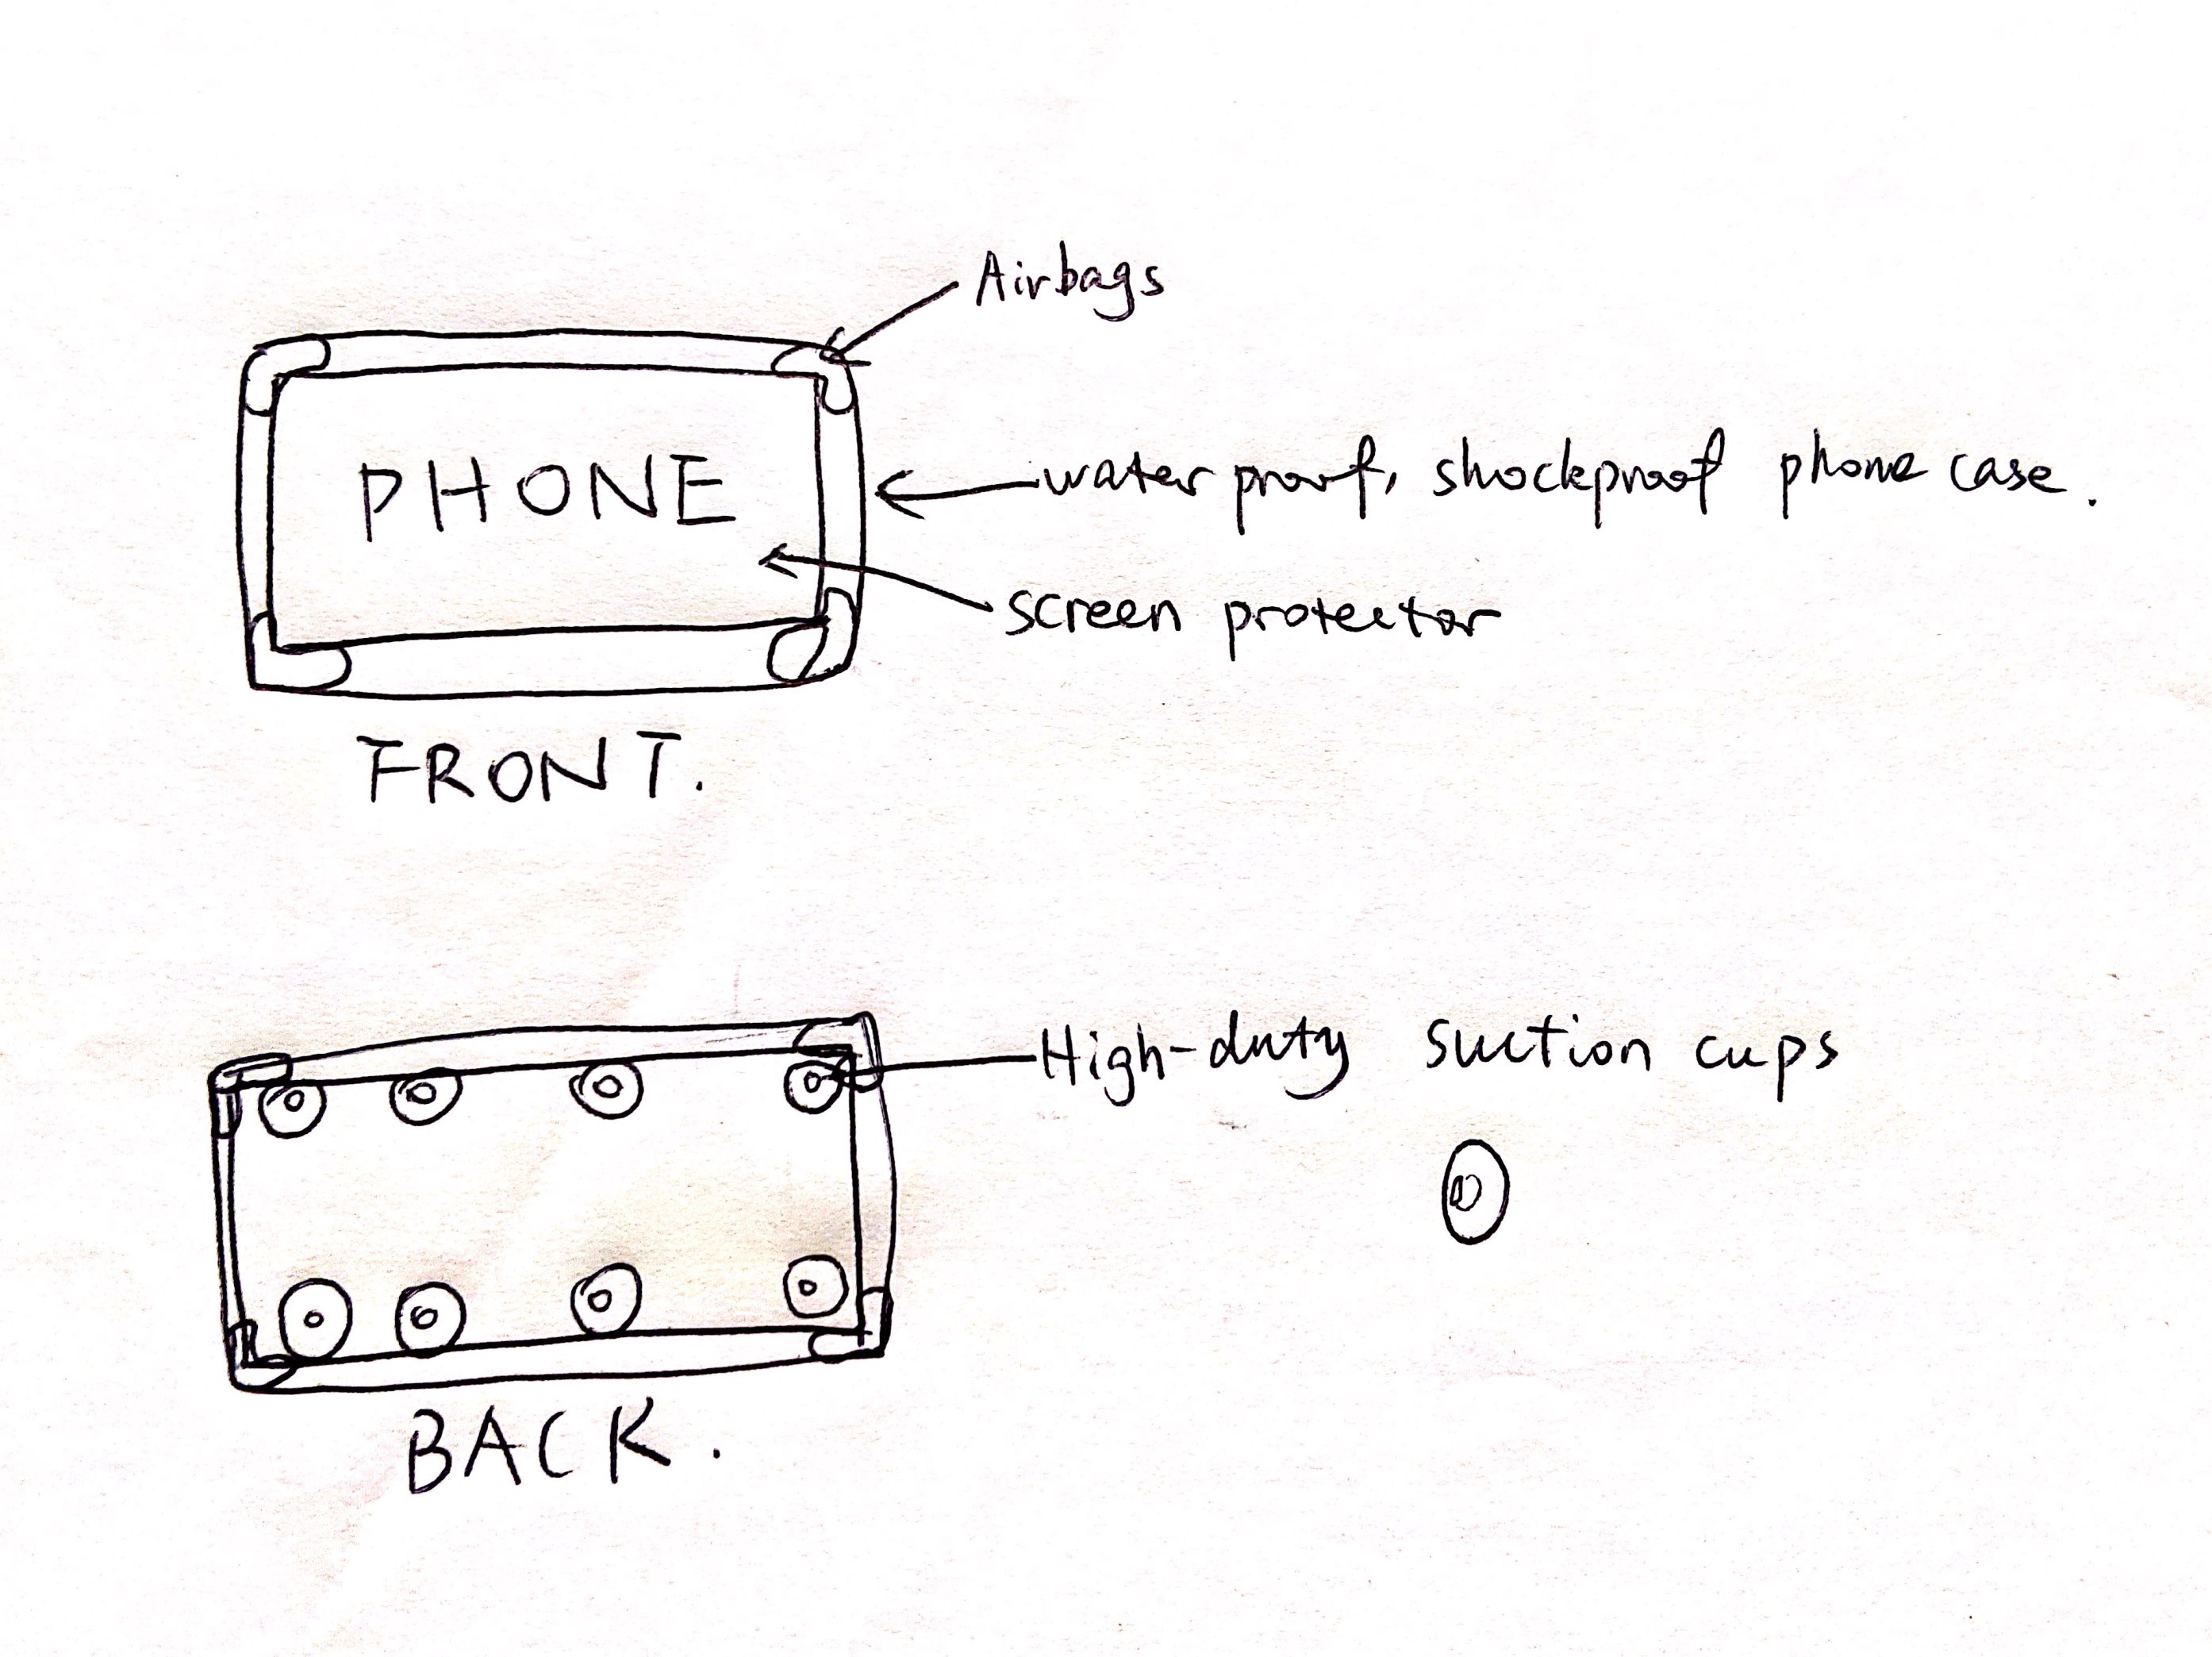 Airbags
PHONE
waterproof, shockproof phone case.
screen protector
FRONT.
High-duty suction cups
BACK.